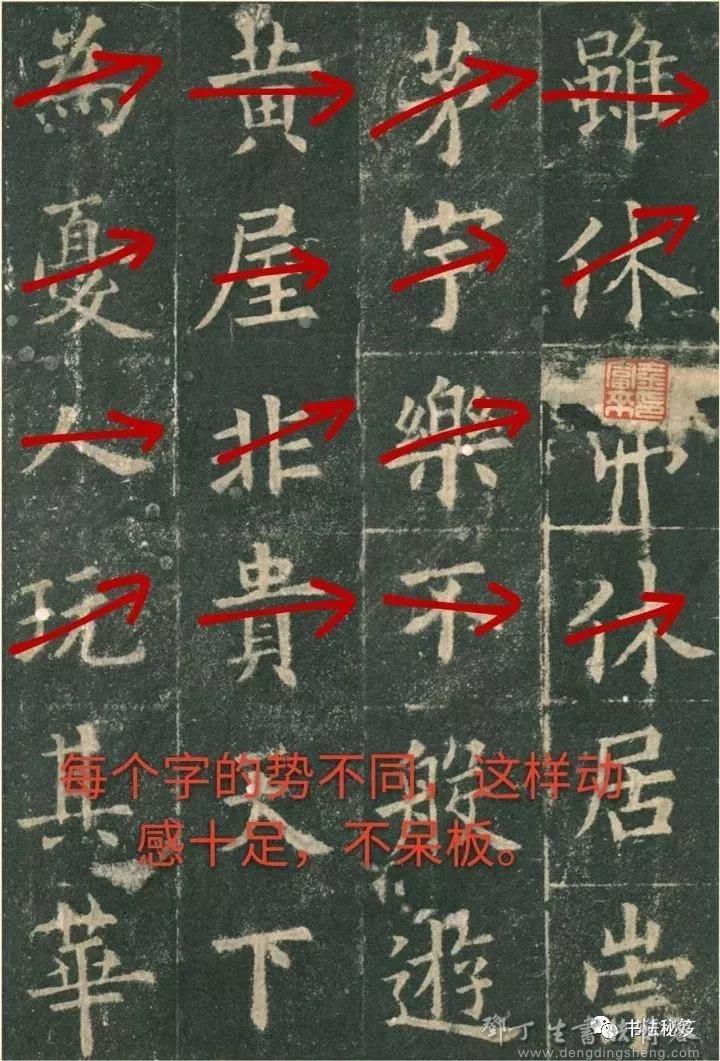 雖休休居崇
茅宇樂不般遊
黄屋非貴天下
為憂人玩其華
每个字的势不同，这样动
感十足，不呆板。
书法秘笈
www.dengdingsheng.com